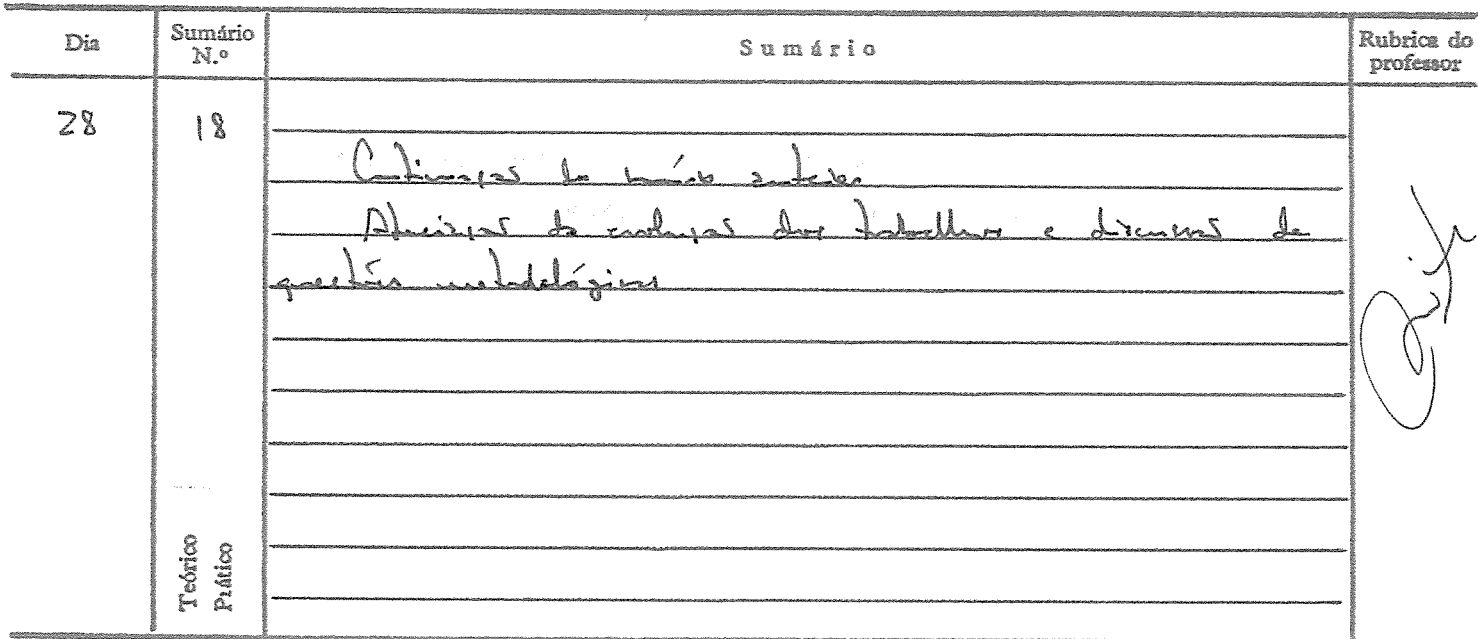 Dia
Sumário N.º
Sumário
Rubrica do professor
28
18
Continuação do sumário anterior
da evolução dos trabalhos e discussão de
questões metodológicas
Teórico
Prático